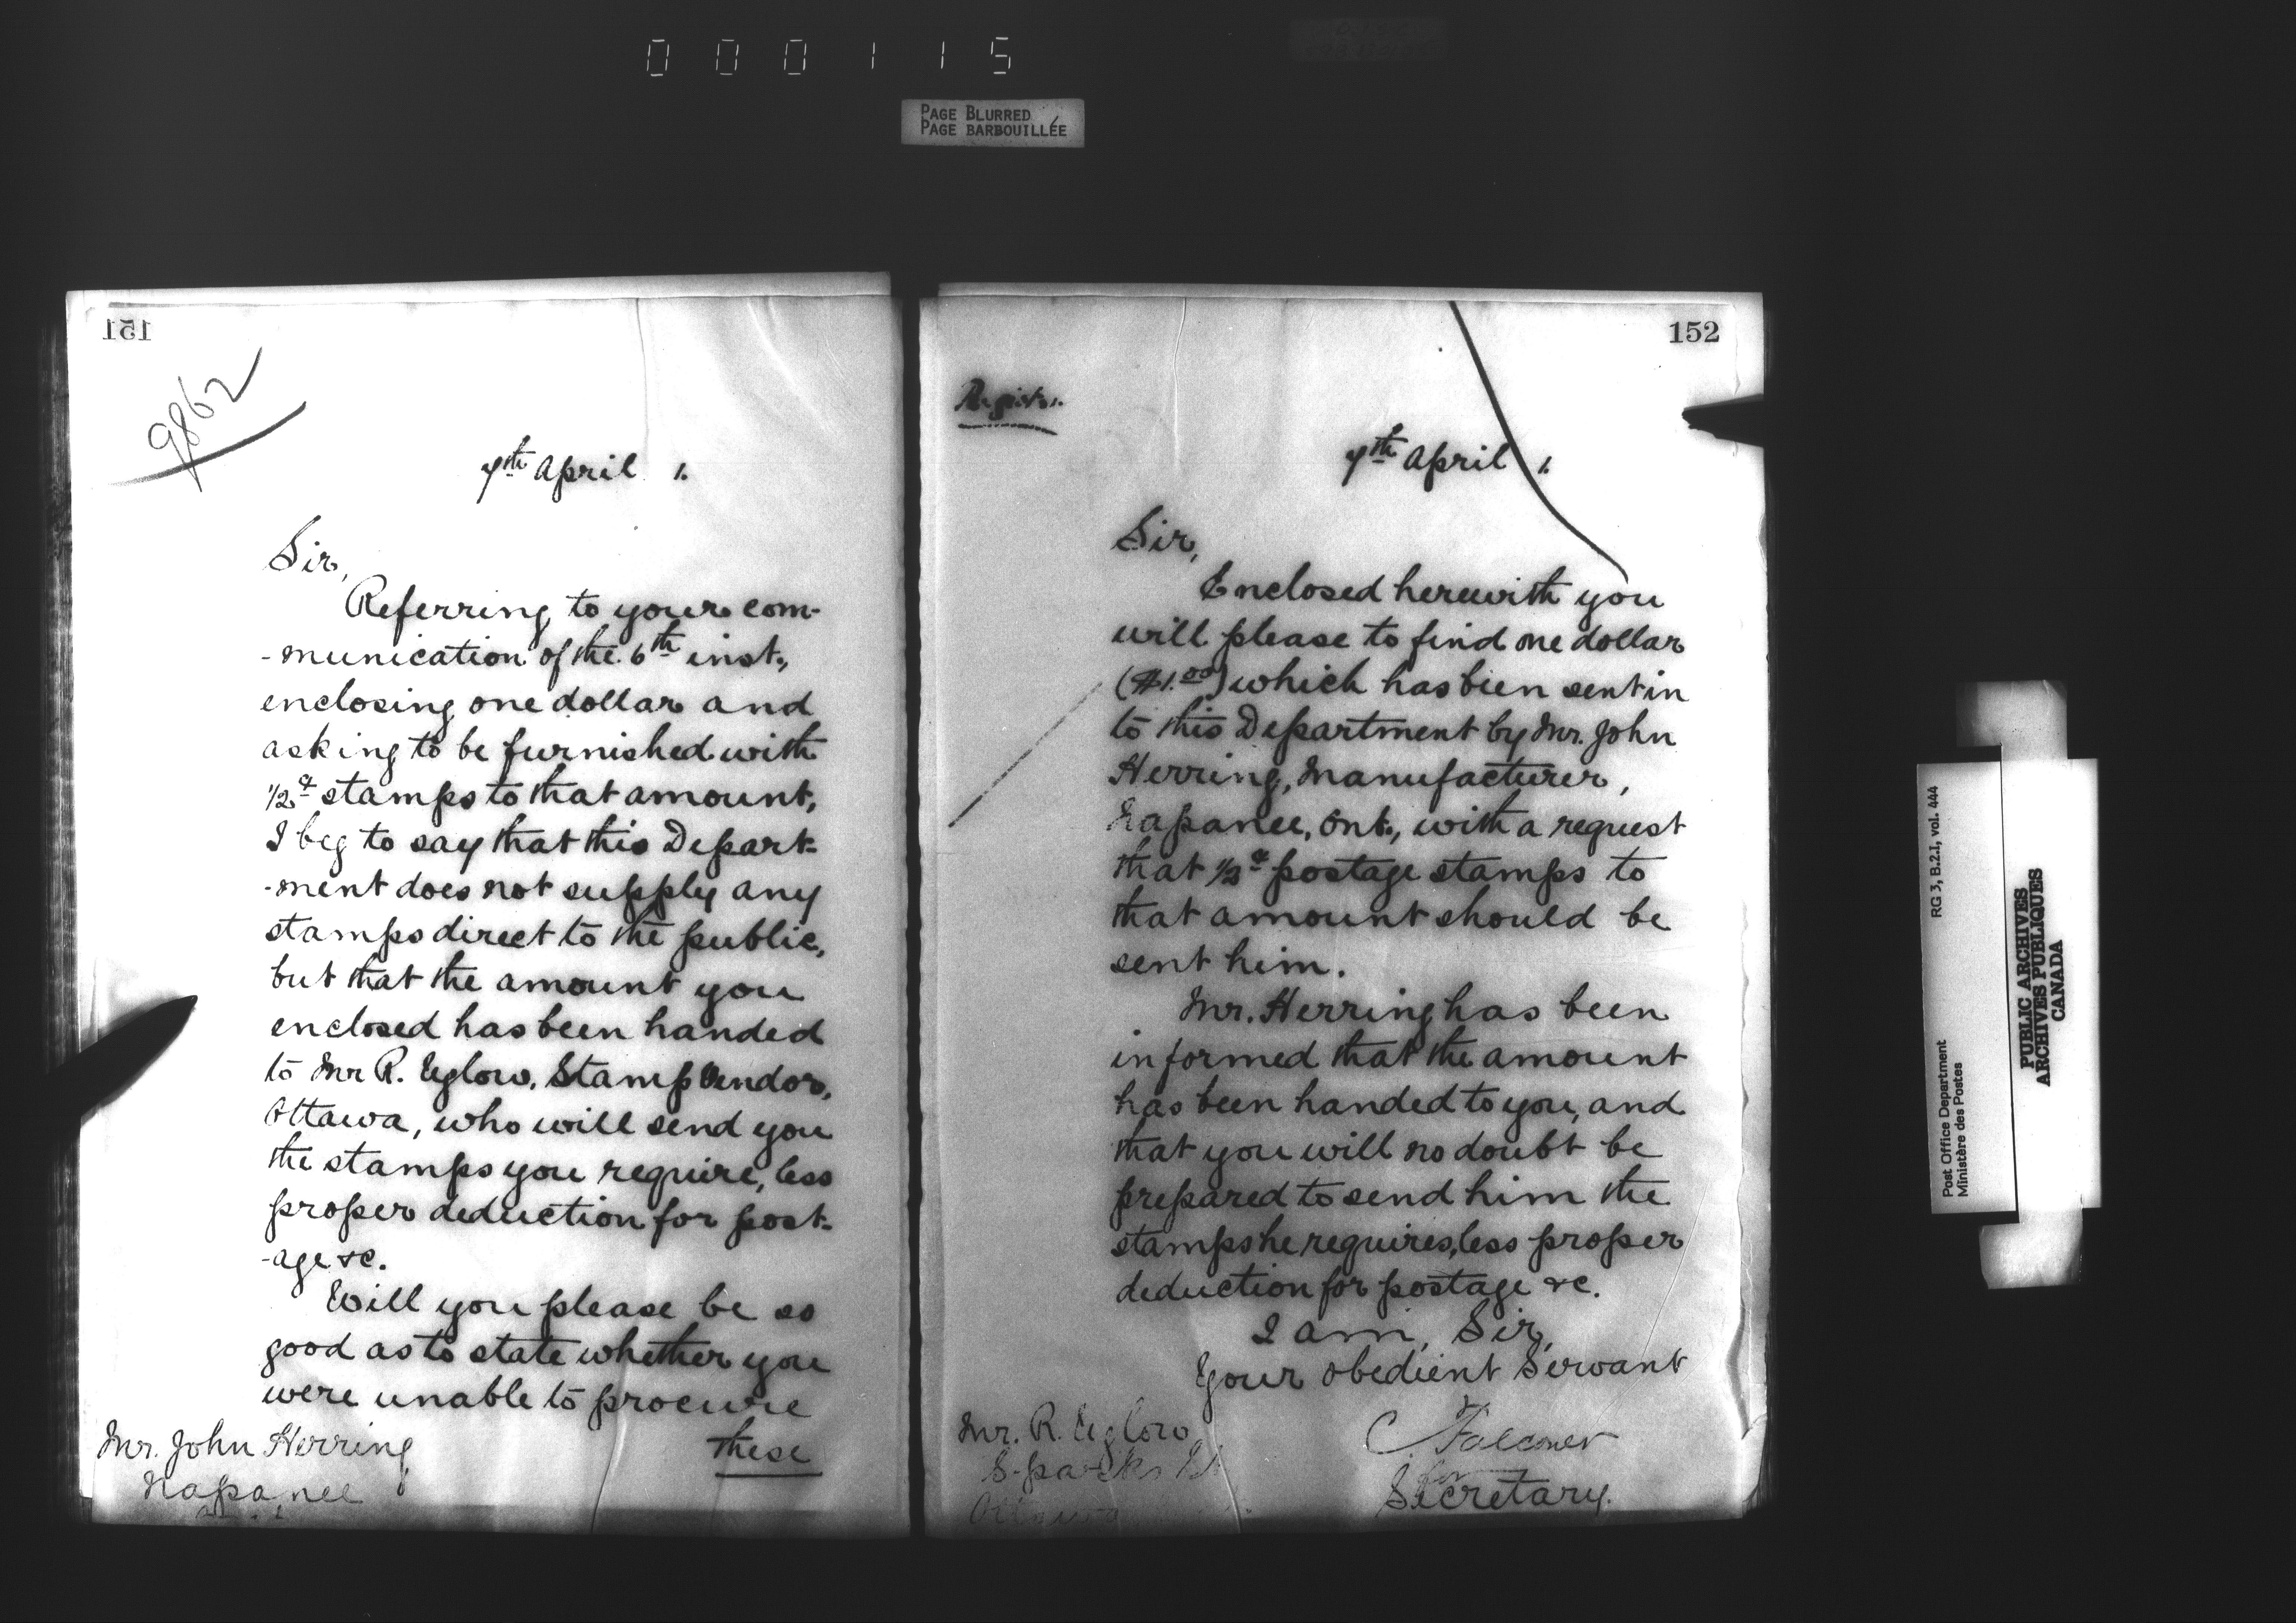 000115
PAGE BLURRED
PAGE BARBOUILLÉE
151
9862
7th April 1.
Sir,
Referring to your com-
-munication of the 6th inst.,
enclosing one dollar and
asking to be furnished with
1/2ct stamps to that amount,
I beg to say that this Depart-
-ment does not supply any
stamps direct to the public,
but that the amount you
enclosed has been handed
to Mr R. Uglow, Stamp Vendor,
Ottawa, who will send you
the stamps you require, less
proper deduction for post-
-age &c.
Will you please be so
good as to state whether you
were unable to procure
these
Mr. John Herring
Napanee
152
7th April 1.
Sir,
Enclosed herewith you
will please to find one dollar
($1.00) which has been sent in
to this Department by Mr. John
Herring, Manufacturer,
Napanee, Ont., with a request
that 1/2ct postage stamps to
that amount should be
sent him.
Mr. Herring has been
informed that the amount
has been handed to you, and
that you will no doubt be
prepared to send him the
stamps he requires, less proper
deduction for postage &c.
I am, Sir,
Your obedient Servant
C. Falconer
for
Secretary.
Mr. R. Uglow
Sparks St
Ottawa
RG 3, B.2.I, vol. 444
Post Office Department
Ministère des Postes
PUBLIC ARCHIVES
ARCHIVES PUBLIQUES
CANADA